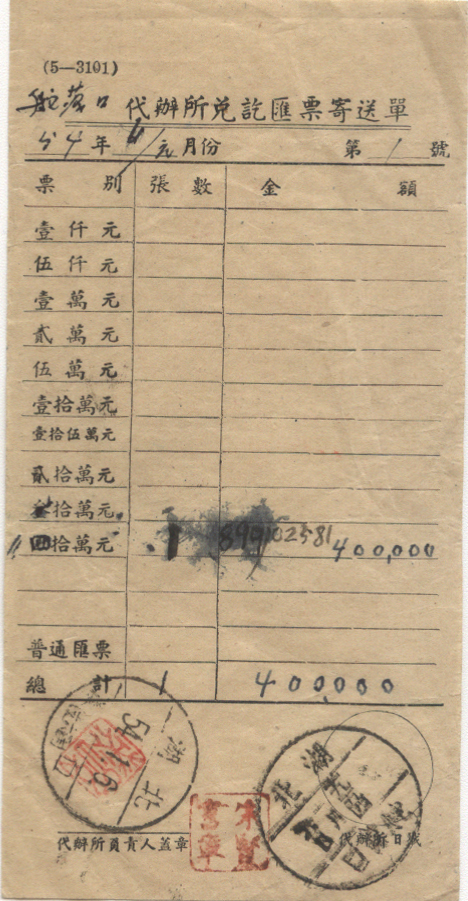 (5—3101)
代辦所兌訖匯票寄送單
54年 元月份 第 1 號
票別 張數 金額
壹仟元
伍仟元
壹萬元
貳萬元
伍萬元
壹拾萬元
壹拾伍萬元
貳拾萬元
叁拾萬元
四拾萬元 1 899102581 400,000
普通匯票
總計 1 400000
湖北
54.1.6
湖北
朱覽
書章
代辦所員責人蓋章 代辦所日戳